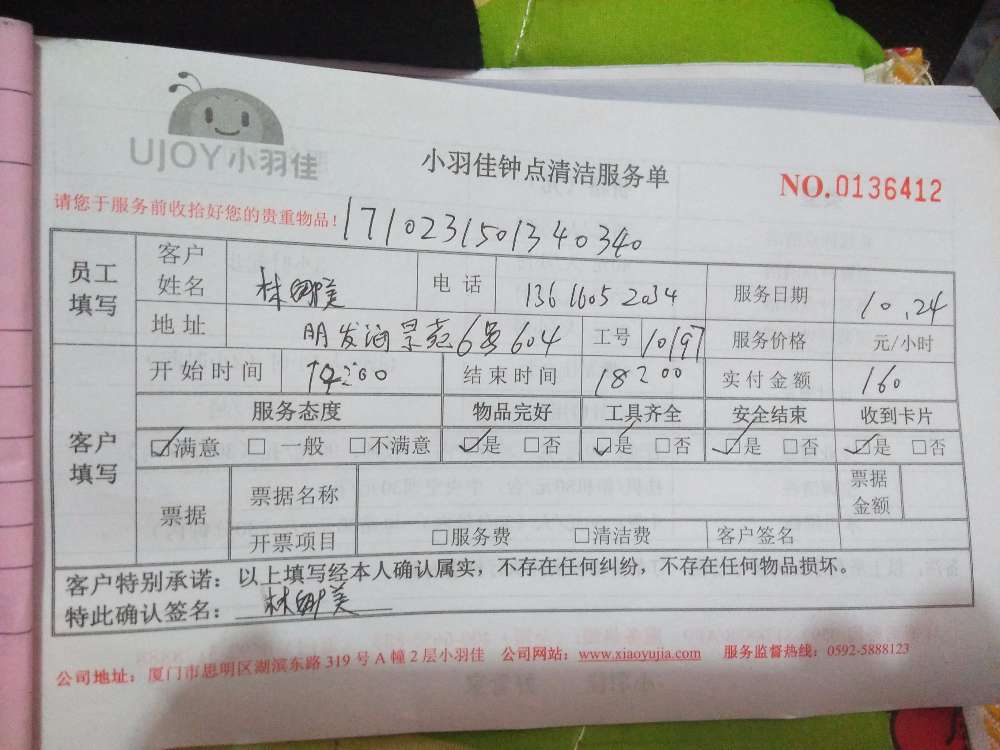 UJOY小羽佳
小羽佳钟点清洁服务单
NO.0136412
请您于服务前收拾好您的贵重物品!
1710231501340340
员工填写 客户姓名 林 美 电话 13616052034 服务日期 10.24
地址 明发 景苑6号604 工号 10197 服务价格 元/小时
客户填写 开始时间 14:00 结束时间 18:00 实付金额 160
服务态度 物品完好 工具齐全 安全结束 收到卡片
☑满意 □一般 □不满意 ☑是 □否 ☑是 □否 ☑是 □否 ☑是 □否
票据 票据名称 票据金额
开票项目 □服务费 □清洁费 客户签名
客户特别承诺：以上填写经本人确认属实，不存在任何纠纷，不存在任何物品损坏。
特此确认签名：林 美
公司地址：厦门市思明区湖滨东路319号A幢2层小羽佳 公司网站：www.xiaoyujia.com 服务监督热线：0592-5888123